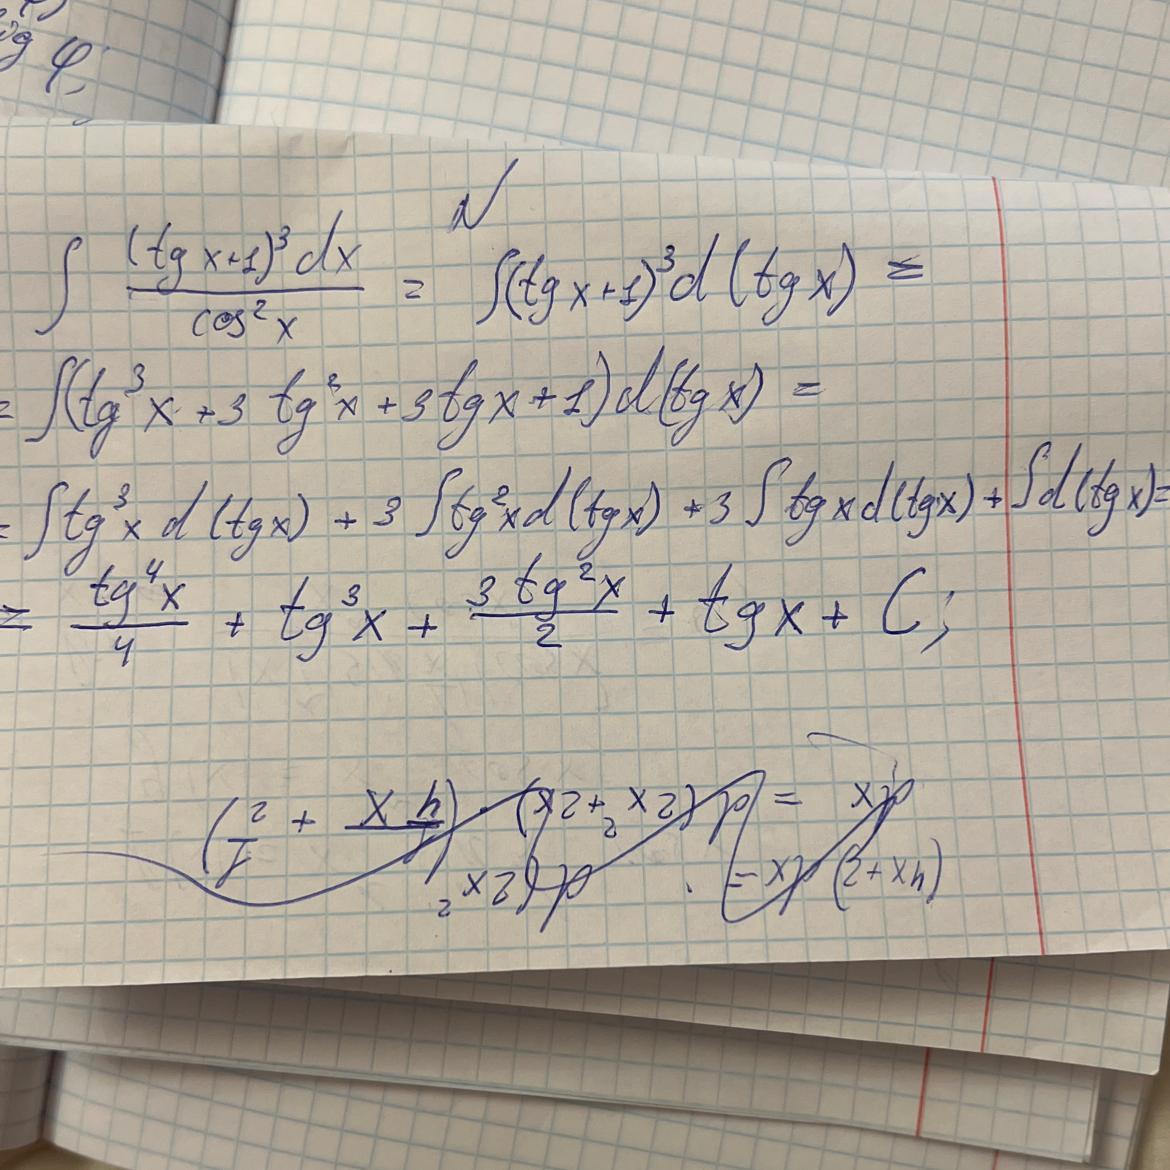 φ,
N
∫ (tg x+1)³ dx / cos² x = ∫(tg x+1)³ d (tg x) =
= ∫(tg³ x + 3 tg² x + 3 tg x + 1) d(tg x) =
= ∫ tg³ x d (tg x) + 3 ∫ tg² x d (tg x) + 3 ∫ tg x d(tg x) + ∫ d (tg x) =
= tg⁴ x / 4 + tg³ x + 3 tg² x / 2 + tg x + C;
(4x+2) dx =